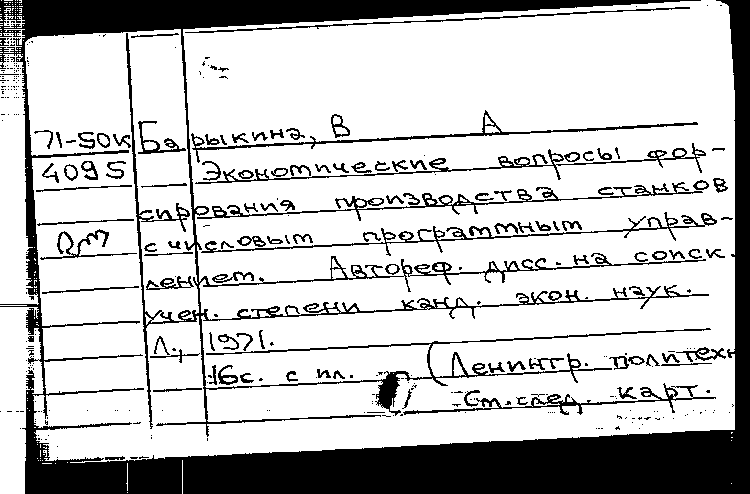 71-50к Барыкина, В А
4095 Экономические вопросы фор-
сирования производства станков
с числовым программным управ-
лением. Автореф. дисс. на соиск.
учен. степени канд. экон. наук.
Л., 1971.
16с. с ил. (Ленингр. политехн
См. след. карт.